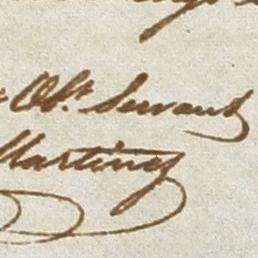 Obt. Servant
Martinez